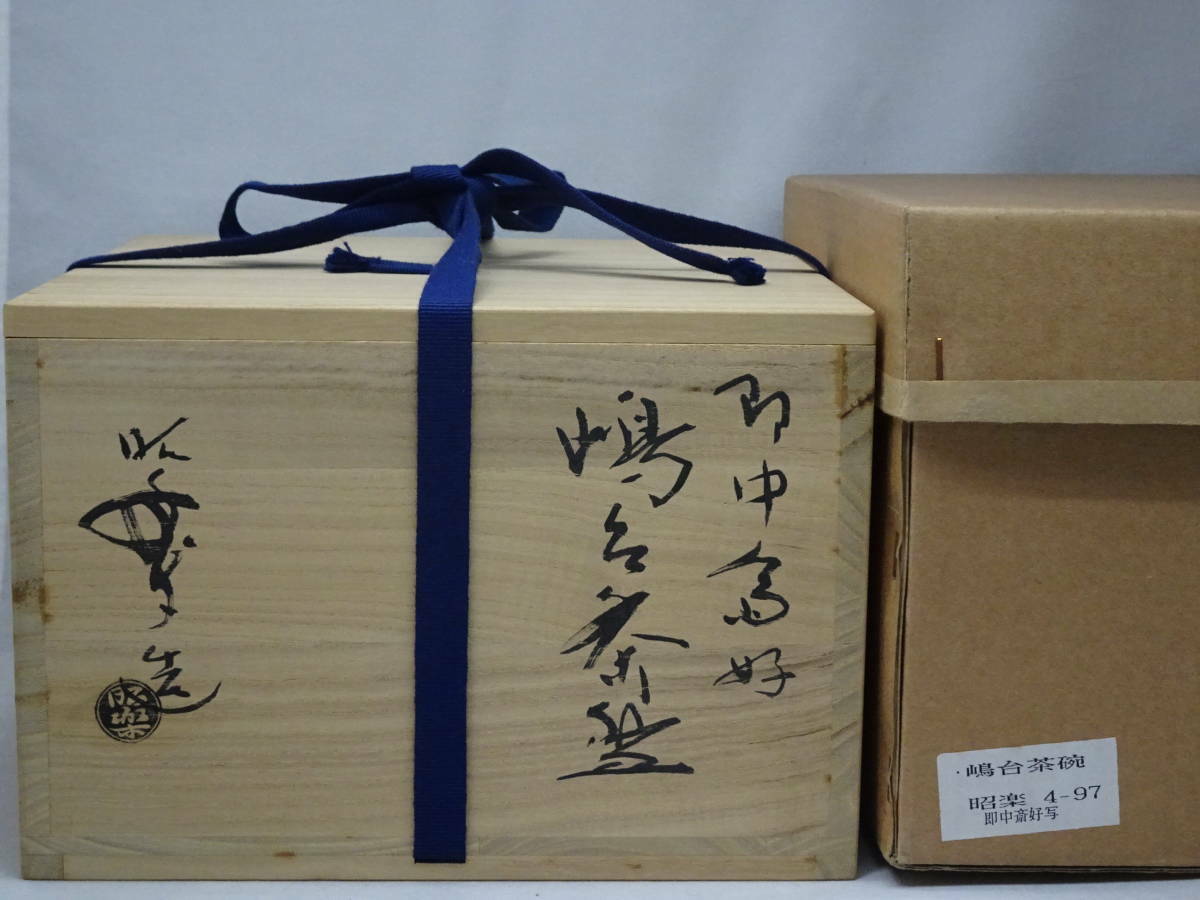 即中斎好
嶋台茶盌
昭楽造
昭楽
・嶋台茶碗
昭楽 4-97
即中斎好写